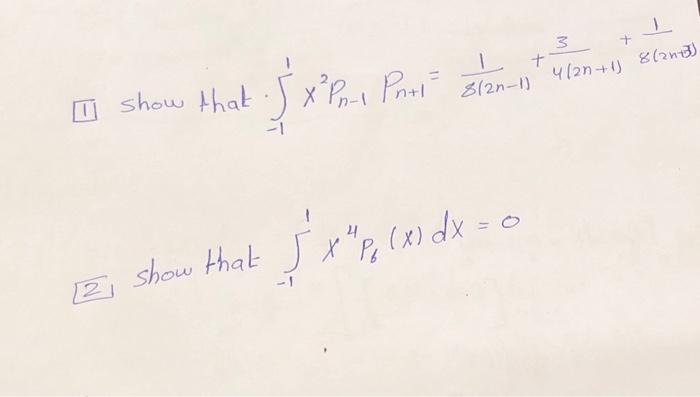 1 show that ∫₋₁¹ x² Pₙ₋₁ Pₙ₊₁ = 1/8(2n-1) + 3/4(2n+1) + 1/8(2n+3)
2 show that ∫₋₁¹ x⁴ P₆(x) dx = 0